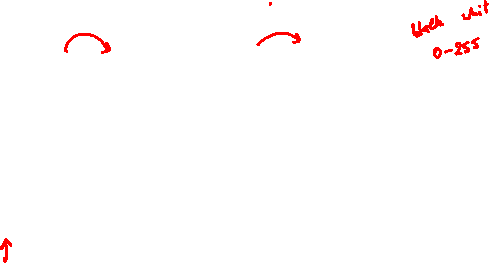 black whit
0-255